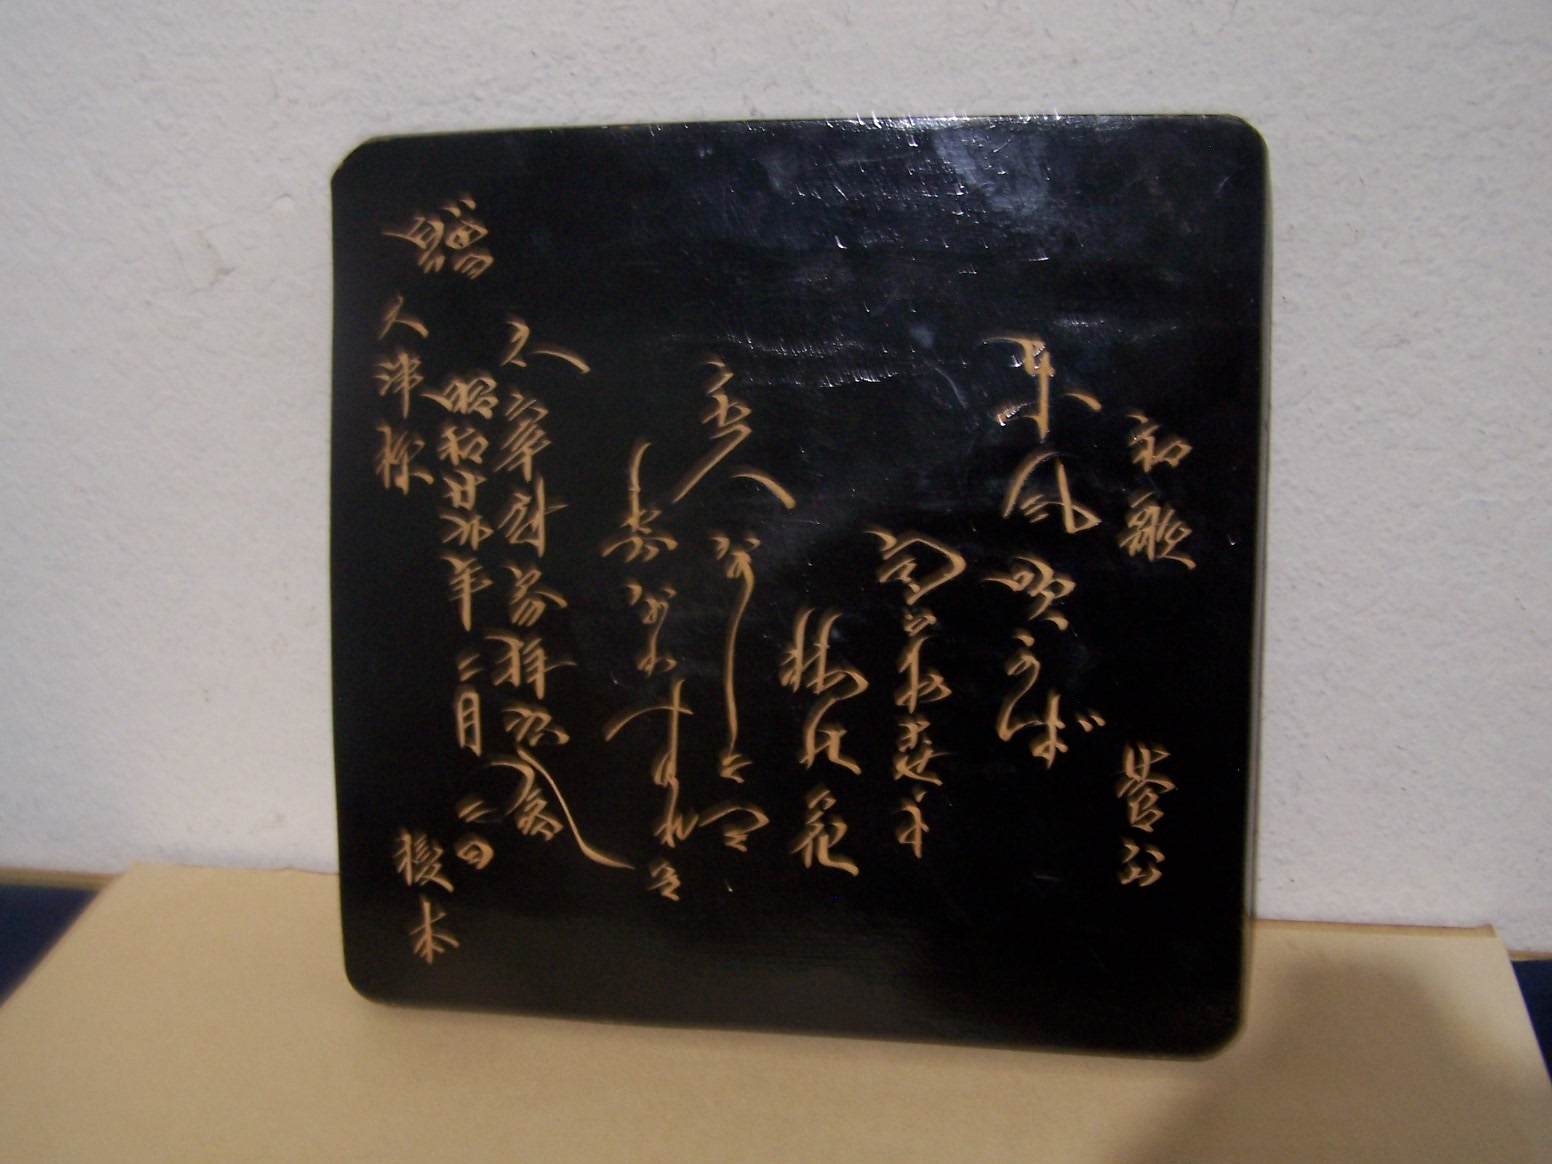 和歌 菅公
東風吹かば
匂ひおこせよ
梅の花
主人なしとて
春なわすれそ
太宰府参拝記念
昭和廿九年二月二日
贈 久津様 榎本